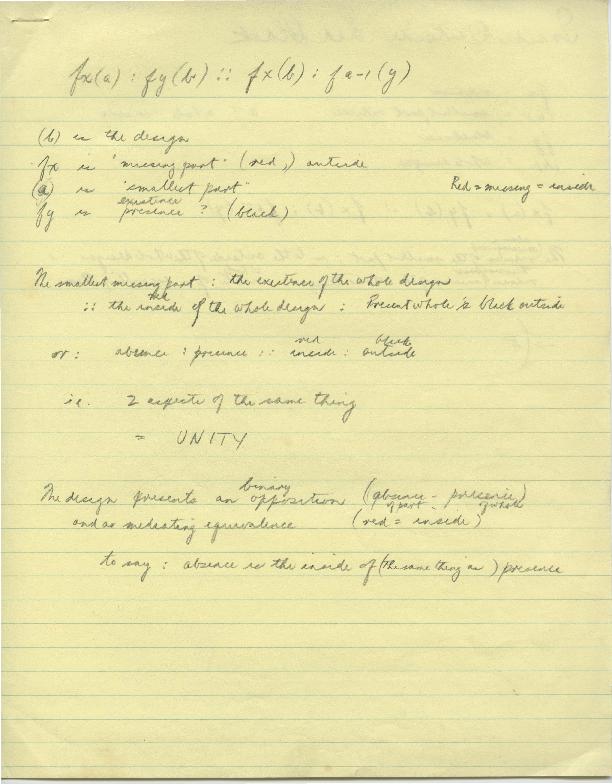 fx(a) : fy(b) :: fx(b) : fa-1(y)
(b) is the design
fx is "missing part" (red,) outside
(a) is "smallest part"
Red = missing = inside
existence
fy is presence ? (black)
The smallest missing part : the existence of the whole design
:: the red inside of the whole design : Present whole is black outside
or : absence : presence :: red inside : black outside
i.e. 2 aspects of the same thing
= UNITY
The design presents an binary opposition (absence - presence)
of part - of whole
and as mediating equivalence (red = inside)
to say : absence is the inside of (the same thing as) presence